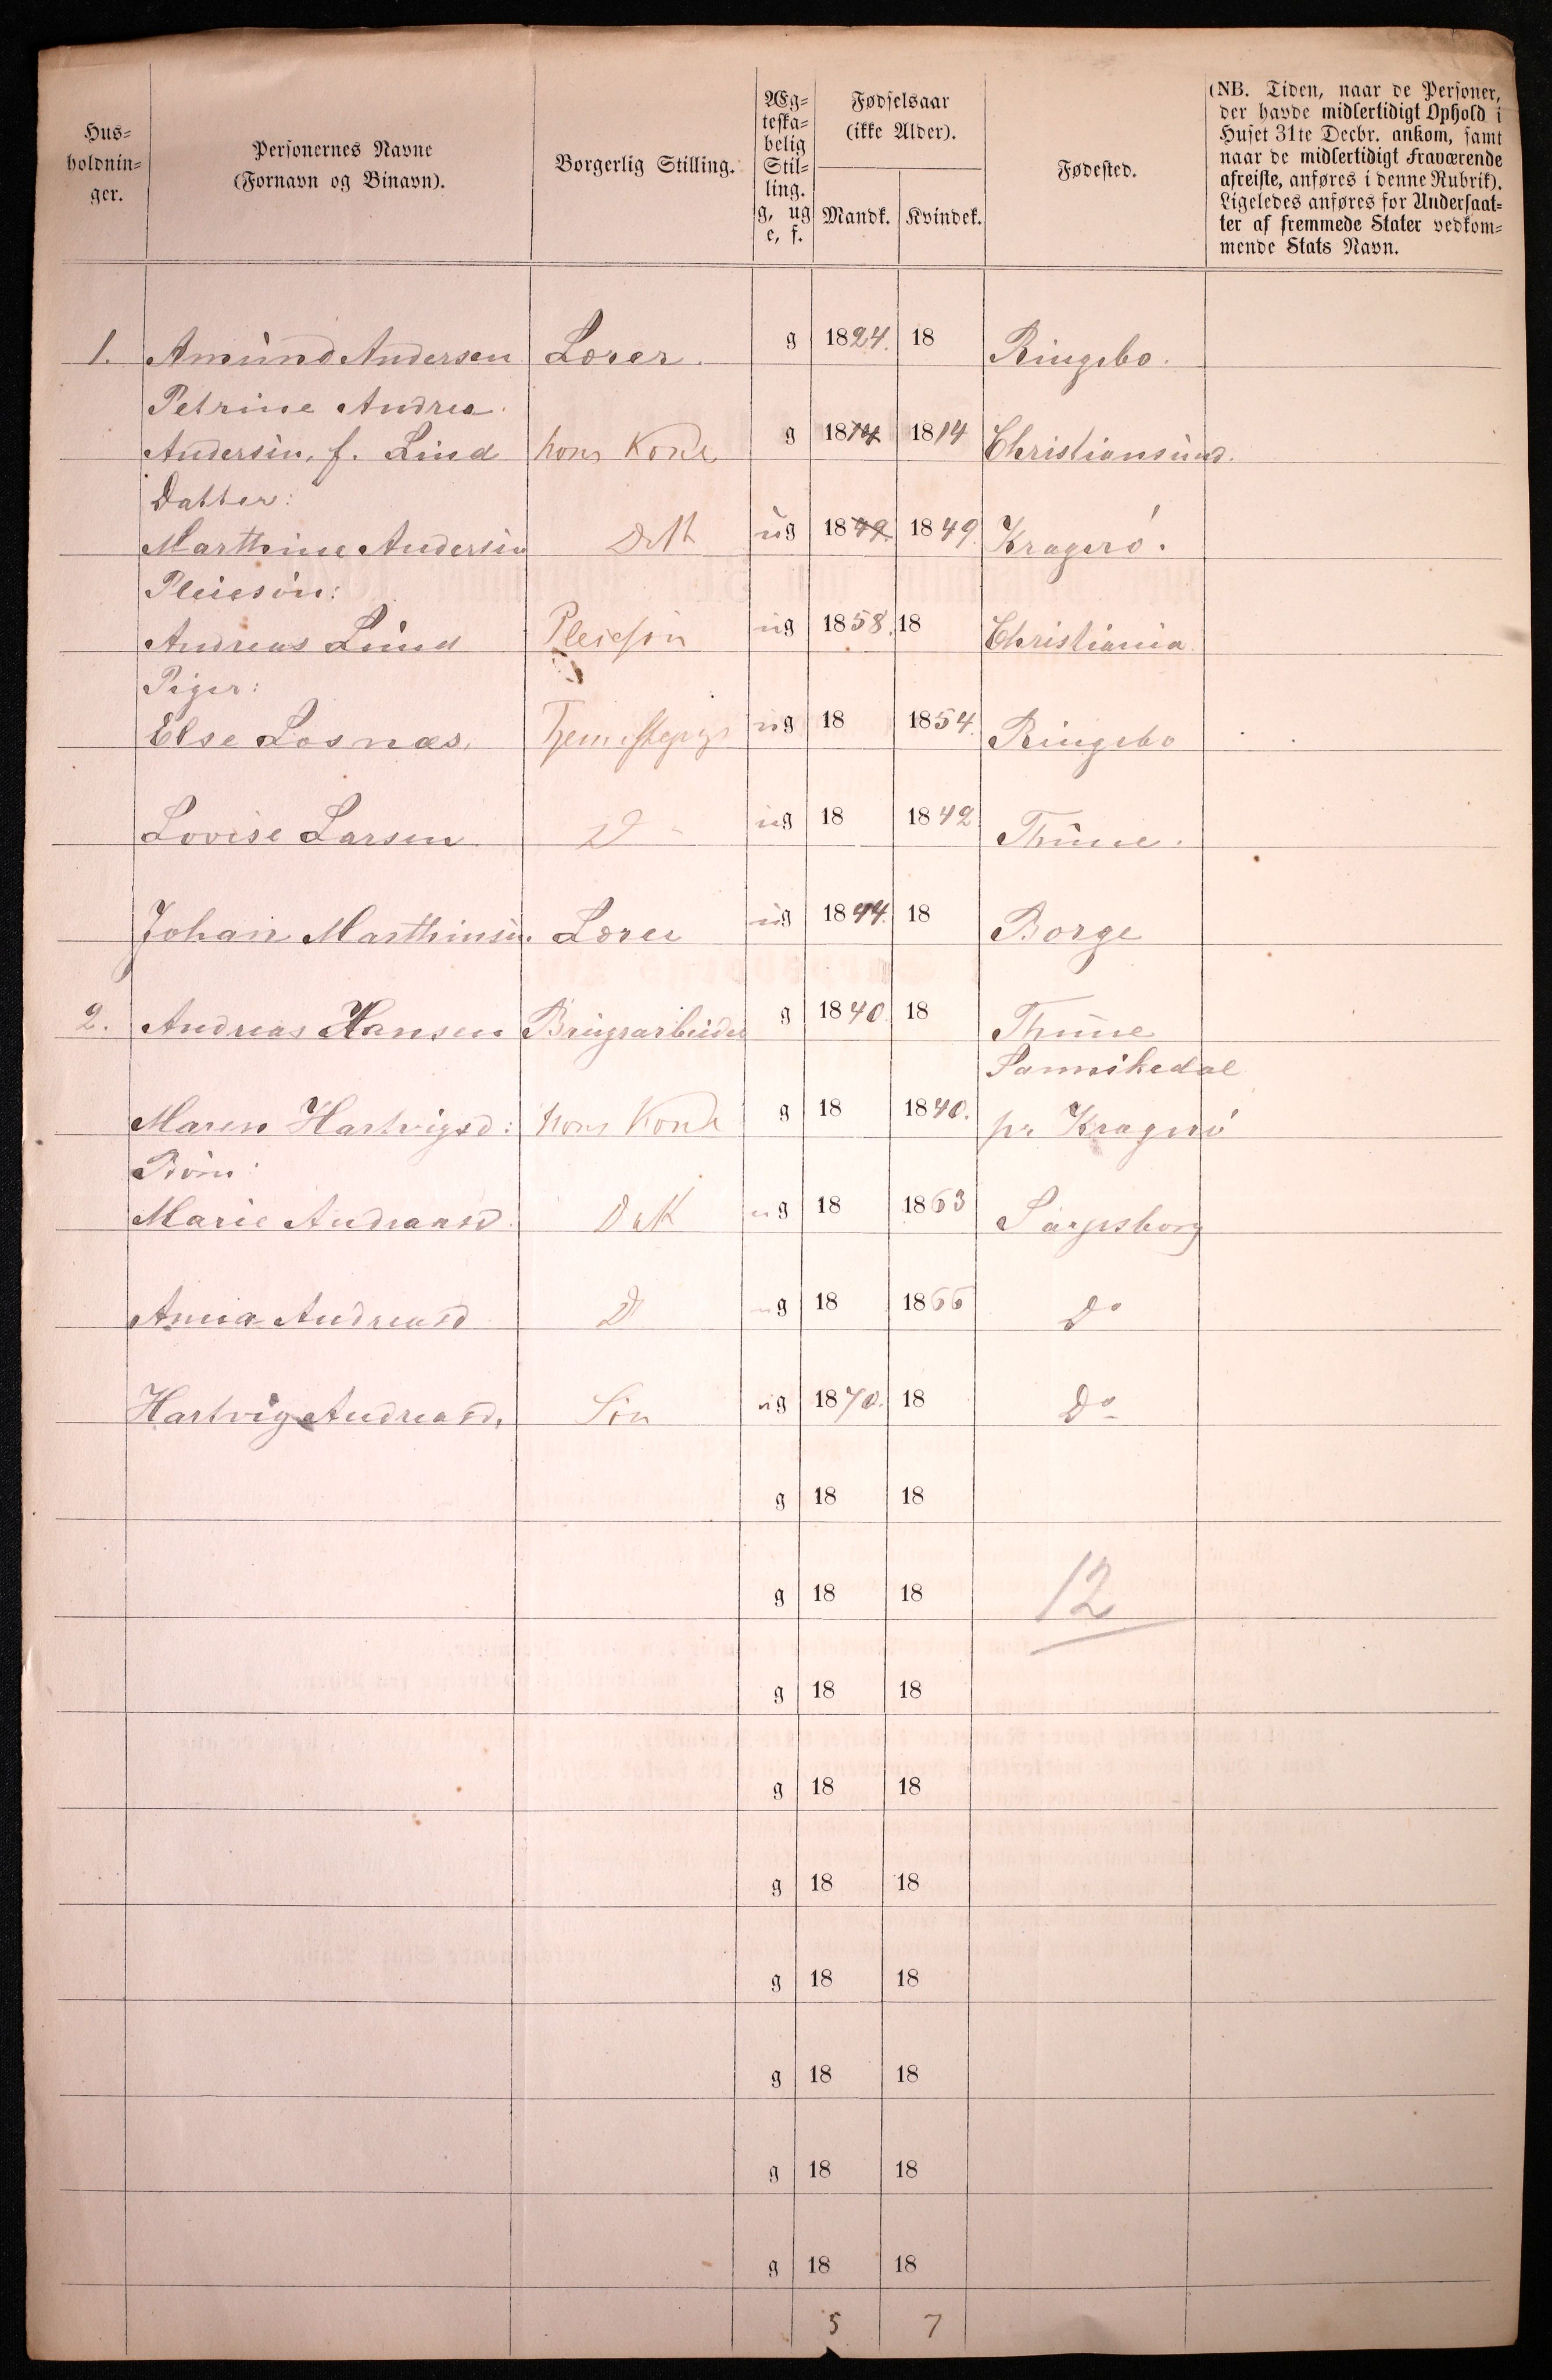 Hus-
holdnin-
ger.
Personernes Navne
(Fornavn og Binavn).
Borgerlig Stilling.
Æg-
teska-
belig
Stil-
ling.
g, ug
e, f.
Fødselsaar
(ikke Alder).
Mandk. Kvindek.
Fødested.
(NB. Tiden, naar de Personer,
der havde midlertidigt Ophold i
Huset 31te Decbr. ankom, samt
naar de midlertidigt Fraværende
afreiste, anføres i denne Rubrik).
Ligeledes anføres for Undersaat-
ter af fremmede Stater vedkom-
mende Stats Navn.
1. Amund Andersen Lærer. g 1824. 18 Ringebo.
Petrine Andrea
Andersen, f. Lind hans Kone g 1814 1814 Christiansund.
Datter:
Marthine Andersen Datt ug 1849. 1849. Kragerö.
Pleiesön:
Andreas Lund Pleiesön ug 1858. 18 Christiania
Piger:
Else Losnæs. Tjenestepige ug 18 1854. Ringebo
Lovise Larsen D ug 18 1842 Thune.
Johan Marthinsen. Lærer ug 1844. 18 Borge
2. Andreas Hansen Brugsarbeider g 1840. 18 Thune
Sannikedal
Maren Hartvigsd: hans Kone g 18 1840. pr Kragerö
Börn:
Marie Andreasd. Datt ug 18 1863 Sarpsborg
Anna Andreasd D ug 18 1866 Do
Hartvig Andreasd, Sön ug 1870. 18 Do
g 18 18
g 18 18 12
g 18 18
g 18 18
g 18 18
g 18 18
g 18 18
g 18 18
g 18 18
5 7